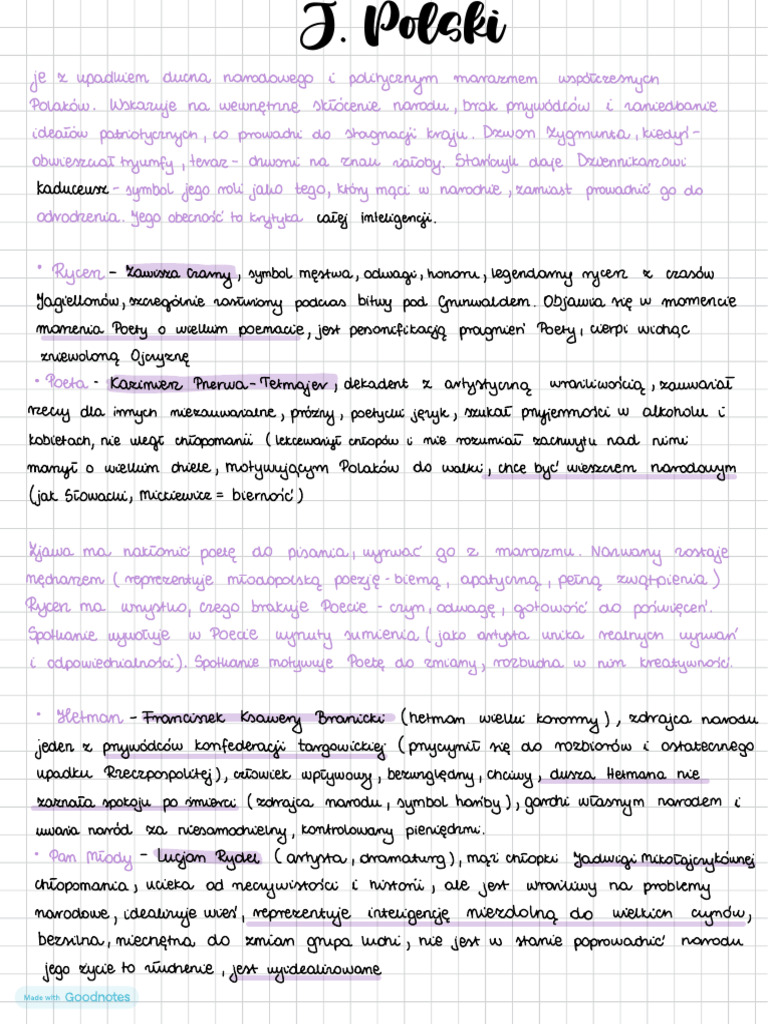 J. Polski
je z upadkiem ducha narodowego i politycznym marazmem współczesnych
Polaków. Wskazuje na wewnętrzne skłócenie narodu, brak przywódców i zaniedbanie
ideałów patriotycznych, co prowadzi do stagnacji kraju. Dzwon Zygmunta, kiedyś-
obwieszczał tryumfy, teraz- dzwoni na znak żałoby. Stańczyk daje Dziennikarzowi
kaduceusz - symbol jego roli jako tego, który mąci w narodzie, zamiast prowadzić go do
odrodzenia. Jego obecność to krytyka całej inteligencji.
• Rycerz - Zawisza Czarny, symbol męstwa, odwagi, honoru, legendarny rycerz z czasów
Jagiellonów, szczególnie zasłużony podczas bitwy pod Grunwaldem. Objawia się w momencie
marzenia Poety o wielkim poemacie, jest personifikacją pragnień Poety, cierpi widząc
zniewoloną Ojczyznę
• Poeta - Kazimierz Przerwa-Tetmajer, dekadent z artystyczną wrażliwością, zauważał
rzeczy dla innych niezauważalne, próżny, poetycki język, szukał przyjemności w alkoholu i
kobietach, nie uległ chłopomanii (lekceważył chłopów i nie rozumiał zachwytu nad nimi
marzył o wielkim dziele, motywującym Polaków do walki, chce być wieszczem narodowym
(jak Słowacki, Mickiewicz = bierność)
Zjawa ma nakłonić poetę do pisania, wyrwać go z marazmu. Nazwany zostaje
nędzarzem (reprezentuje młodopolską poezję - bierną, apatyczną, pełną zwątpienia)
Rycerz ma wszystko, czego brakuje Poecie - czyn, odwagę, gotowość do poświęceń.
Spotkanie wywołuje w Poecie wyrzuty sumienia (jako artysta unika realnych wyzwań
i odpowiedzialności). Spotkanie motywuje Poetę do zmiany, rozbucha w nim kreatywność.
• Hetman - Franciszek Ksawery Branicki (hetman wielki koronny), zdrajca narodu
jeden z przywódców konfederacji targowickiej (przyczynił się do rozbiorów i ostatecznego
upadku Rzeczpospolitej), człowiek wpływowy, bezwzględny, chciwy, dusza Hetmana nie
zaznała spokoju po śmierci (zdrajca narodu, symbol hańby), gardzi własnym narodem i
uważa naród za niesamodzielny, kontrolowany pieniędzmi.
• Pan Młody - Lucjan Rydel (artysta, dramaturg), mąż chłopki Jadwigi Mikołajczykównej
chłopomania, ucieka od rzeczywistości i historii, ale jest wrażliwy na problemy
narodowe, idealizuje wieś, reprezentuje inteligencję niezdolną do wielkich czynów,
bezsilna, niechętna do zmian grupa ludzi, nie jest w stanie poprowadzić narodu
jego życie to złudzenie, jest wyidealizowane
Made with Goodnotes